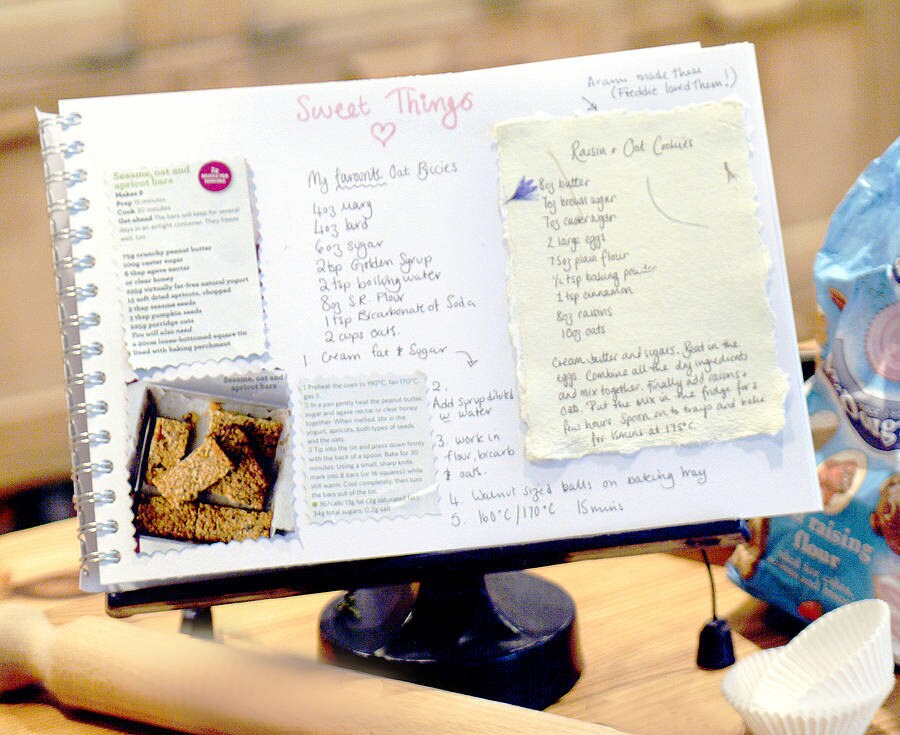 Sweet Things
Aram made these
(Freddie loved them!)
Sesame, oat and
apricot bars
Makes 8
Prep 15 minutes
Cook 30 minutes
Get ahead The bars will keep for several
days in an airtight container. They freeze
well, too.
75g crunchy peanut butter
100g caster sugar
6 tbsp agave nectar
or clear honey
225g virtually fat-free natural yogurt
15 soft dried apricots, chopped
2 tbsp sesame seeds
3 tbsp pumpkin seeds
225g porridge oats
You will also need
a 20cm loose-bottomed square tin
lined with baking parchment
Sesame, oat and
apricot bars
My favourite Oat Biccies
4oz Marg
4oz lard
6oz sugar
2tsp Golden Syrup
2tsp boiling water
8oz S.R. Flour
1 tsp Bicarbonate of Soda
2 cups oats.
1. Cream fat & Sugar
2.
Add syrup diluted
w water
3. work in
flour, bicarb
& oats.
4. Walnut sized balls on baking tray
5. 160°C/170°C 15mins
1 Preheat the oven to 190°C, fan 170°C,
gas 5.
2 In a pan gently heat the peanut butter,
sugar and agave nectar or clear honey
together. When melted, stir in the
yogurt, apricots, both types of seeds
and the oats.
3 Tip into the tin and press down firmly
with the back of a spoon. Bake for 30
minutes. Using a small, sharp knife,
mark into 8 bars (or 16 squares) while
still warm. Cool completely, then turn
the bars out of the tin.
367cals; 13g fat (2g saturated fat);
34g total sugars; 0.2g salt
Raisin + Oat Cookies
8oz butter
7oz brown sugar
7oz caster sugar
2 large eggs
7.5oz plain flour
½ tsp baking powder
1 tsp cinnamon
8oz raisins
10oz oats
Cream butter and sugars. Beat in the
eggs. Combine all the dry ingredients
and mix together. Finally add raisins +
oats. Put the mix in the fridge for a
few hours. Spoon on to trays and bake
for 15mins at 175°C
raising
flour